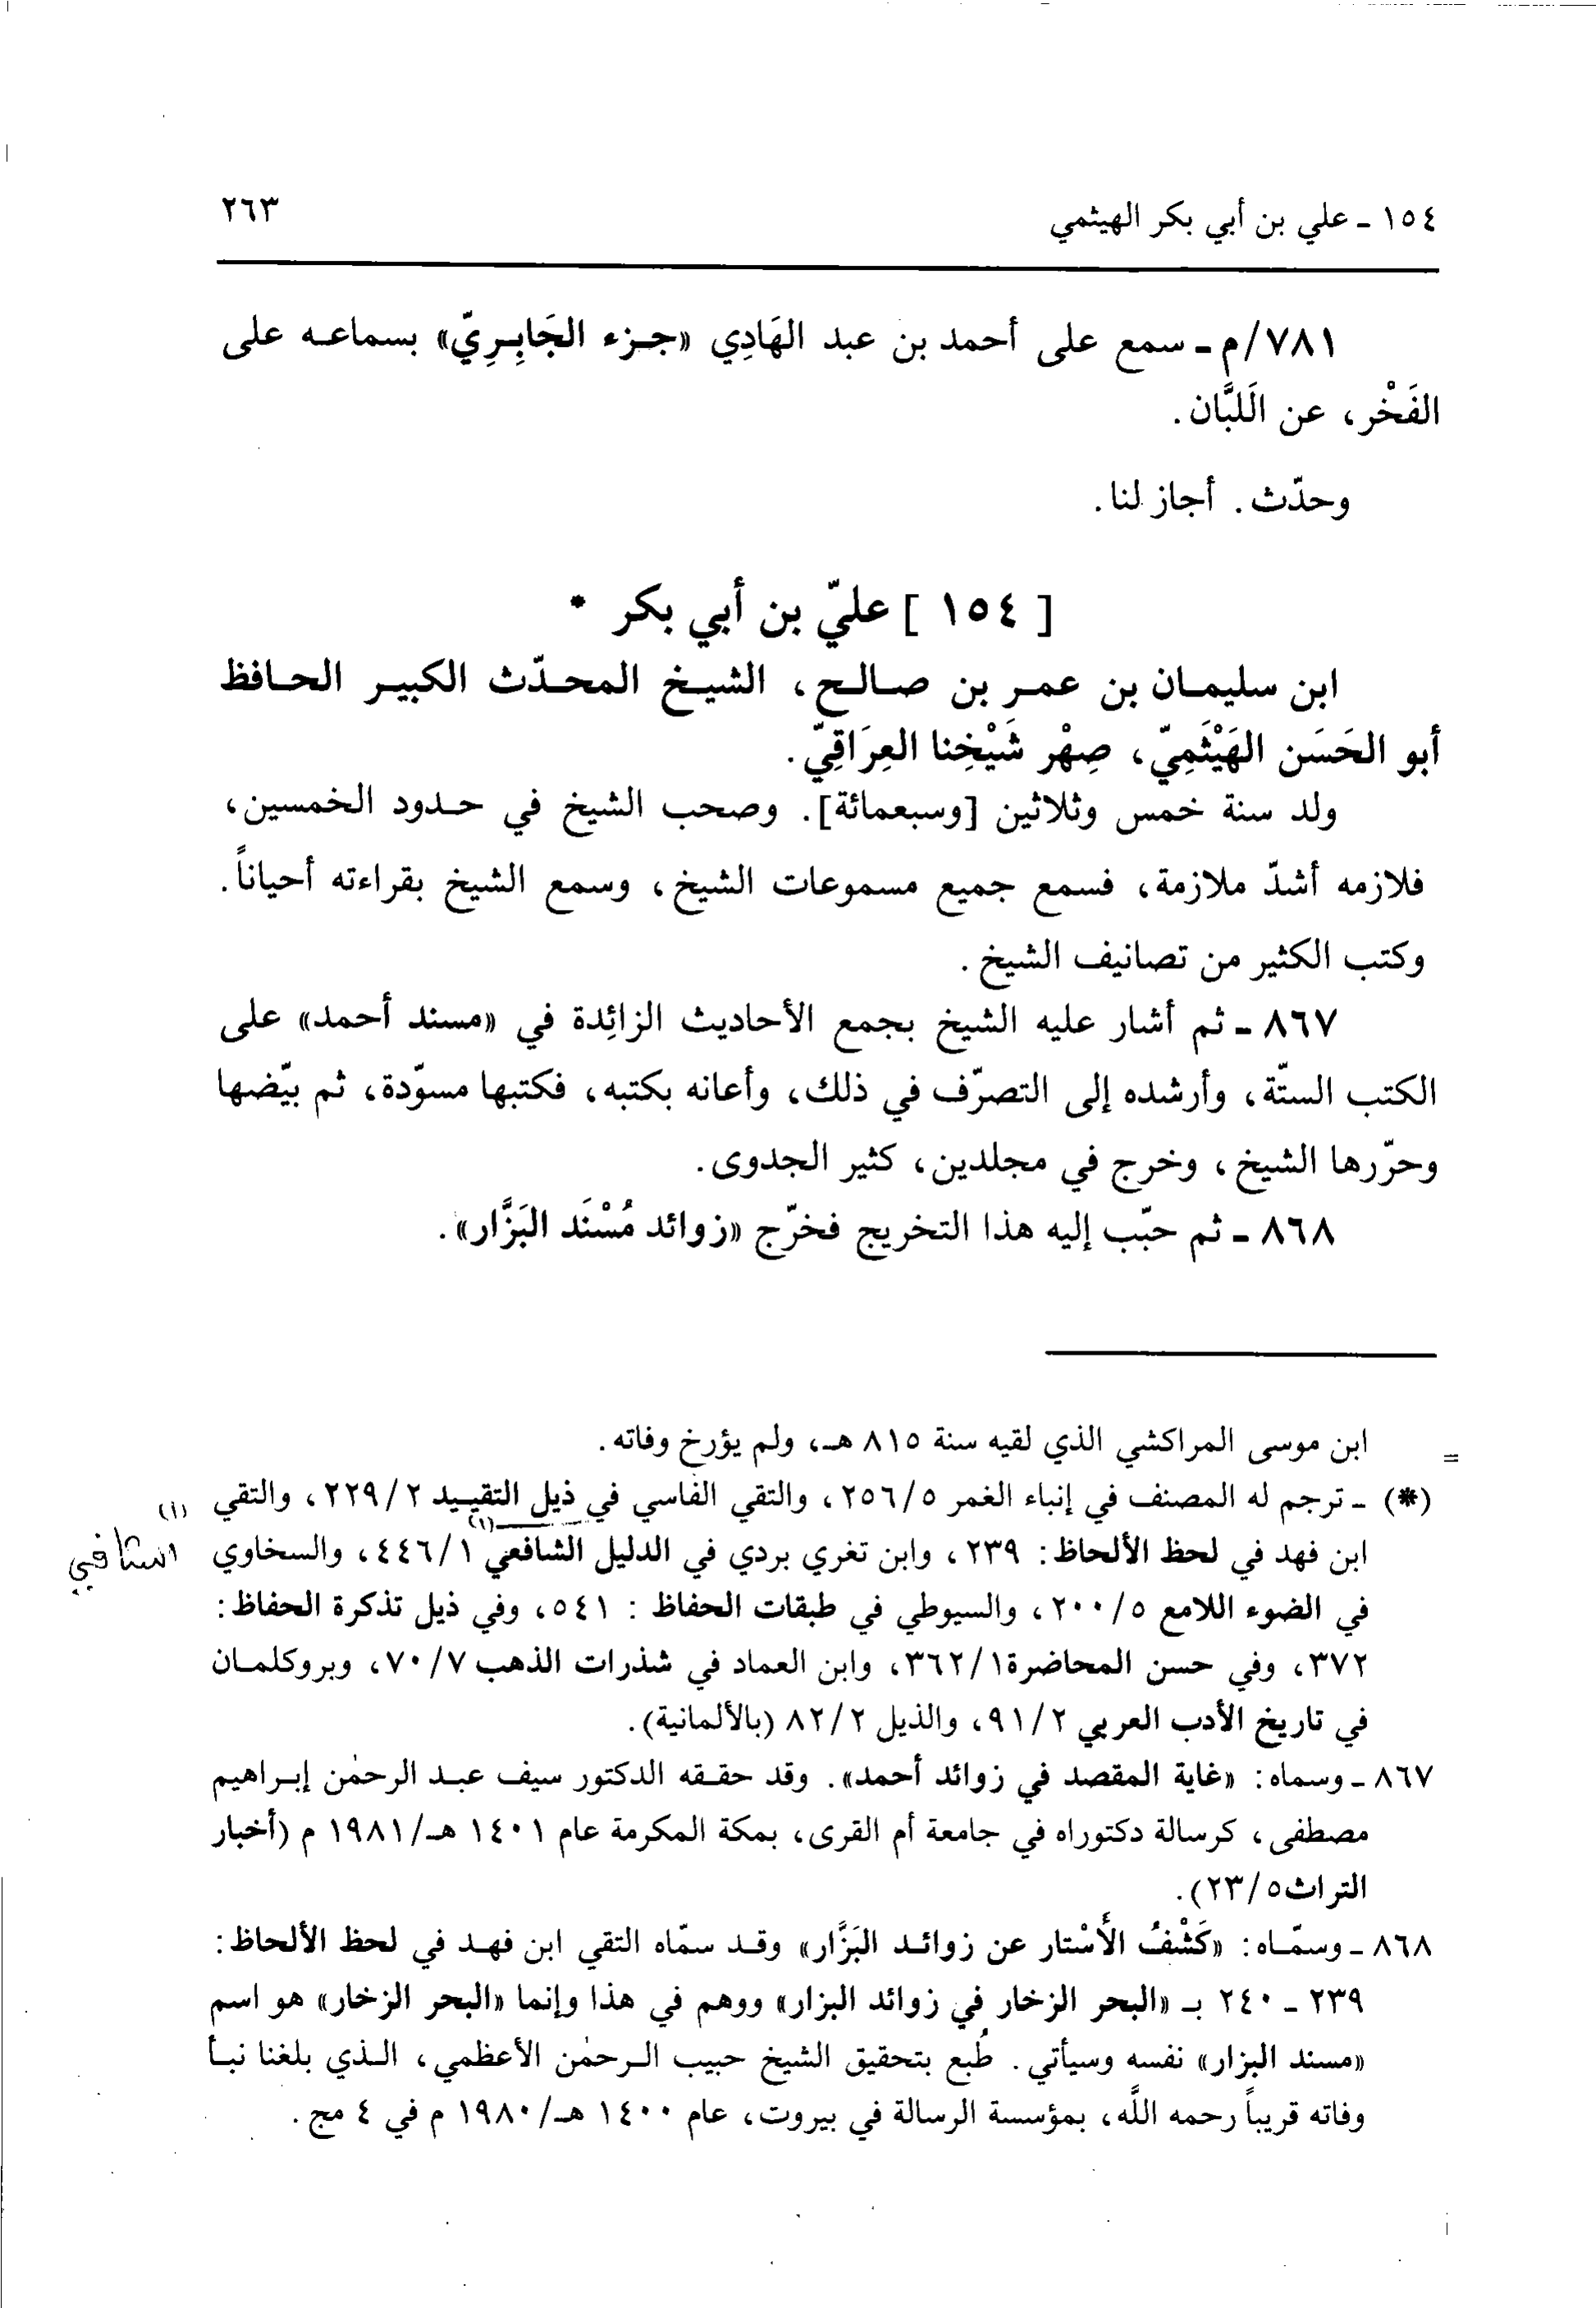 ١٥٤ ـ علي بن أبي بكر الهيثمي
٢٦٣
٧٨١/م ـ سمع على أحمد بن عبد الهَادِي «جـزء الجَابِـرِيّ» بسماعـه على
الفَخْر، عن الَلبَّان.
وحدّث. أجاز لنا.
[ ١٥٤ ] عليّ بن أبي بكر *
ابن سليمـان بن عمـر بن صـالـح، الشيـخ المحـدّث الكبيـر الحـافظ
أبو الحَسَن الهَيْثَمِيّ، صِهْر شَيْخِنا العِرَاقِيّ.
ولد سنة خمس وثلاثين [وسبعمائة]. وصحب الشيخ في حـدود الخمسين،
فلازمه أشدّ ملازمة، فسمع جميع مسموعات الشيخ، وسمع الشيخ بقراءته أحياناً.
وكتب الكثير من تصانيف الشيخ.
٨٦٧ ـ ثم أشار عليه الشيخ بجمع الأحاديث الزائِدة في «مسند أحمد» على
الكتب الستّة، وأرشده إلى التصرّف في ذلك، وأعانه بكتبه، فكتبها مسوّدة، ثم بيّضها
وحرّرها الشيخ، وخرج في مجلدين، كثير الجدوى.
٨٦٨ ـ ثم حبّب إليه هذا التخريج فخرّج «زوائد مُسْنَد البَزَّار».
= ابن موسى المراكشي الذي لقيه سنة ٨١٥ هـ، ولم يؤرخ وفاته.
(*) ـ ترجم له المصنف في إنباء الغمر ٥/٢٥٦، والتقي الفاسي في ذيل التقييـد ٢/٢٢٩، والتقي
ابن فهد في لحظ الألحاظ: ٢٣٩، وابن تغري بردي في الدليل الشافعي(١) ١/٤٤٦، والسخاوي
في الضوء اللامع ٥/٢٠٠، والسيوطي في طبقات الحفاظ : ٥٤١، وفي ذيل تذكرة الحفاظ:
٣٧٢، وفي حسن المحاضرة١/٣٦٢، وابن العماد في شذرات الذهب٧/٧٠، وبروكلمـان
في تاريخ الأدب العربي ٢/٩١، والذيل ٢/٨٢ (بالألمانية).
٨٦٧ ـ وسماه: «غاية المقصد في زوائد أحمد». وقد حققه الدكتور سيف عبـد الرحمٰن إبـراهيم
مصطفى، كرسالة دكتوراه في جامعة أم القرى، بمكة المكرمة عام ١٤٠١ هـ/١٩٨١ م (أخبار
التراث٥/٢٣).
٨٦٨ ـ وسمّـاه: «كَشْفُ الأَسْتار عن زوائـد البَزَّار» وقـد سمّاه التقي ابن فهـد في لحظ الألحاظ:
٢٣٩ ـ ٢٤٠ بـ «البحر الزخار في زوائد البزار» ووهم في هذا وإنما «البحر الزخار» هو اسم
«مسند البزار» نفسه وسيأتي. طُبع بتحقيق الشيخ حبيب الـرحمٰن الأعظمي، الـذي بلغنا نبـأ
وفاته قريباً رحمه اللَّه، بمؤسسة الرسالة في بيروت، عام ١٤٠٠ هـ/١٩٨٠ م في ٤ مج.
(١)
الشافي